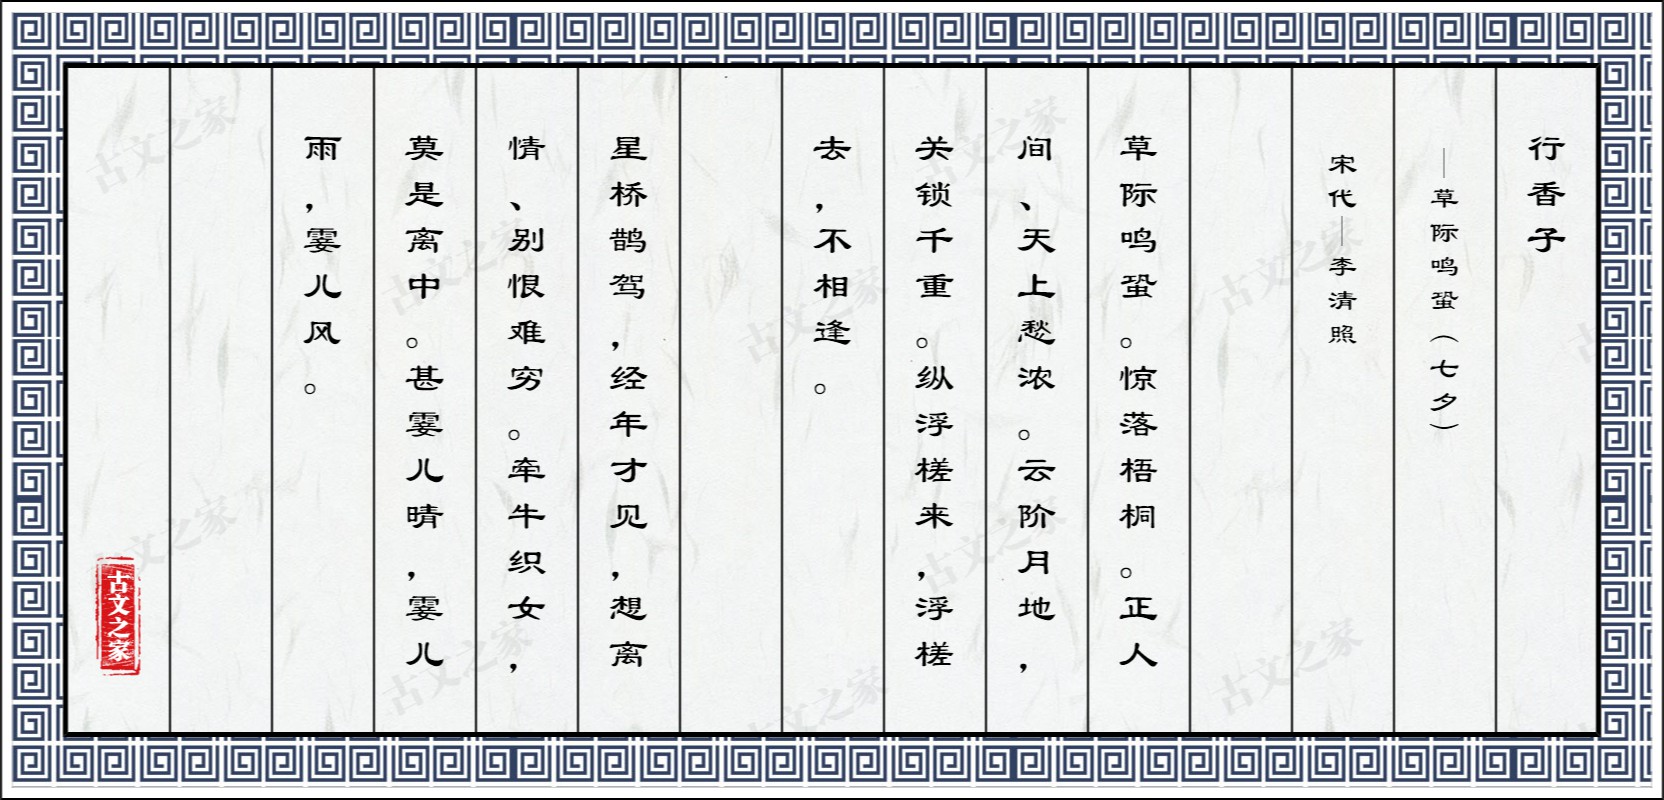 行香子
—草际鸣蛩（七夕）
宋代—李清照
草际鸣蛩。惊落梧桐。正人
间、天上愁浓。云阶月地，
关锁千重。纵浮槎来，浮槎
去，不相逢。
星桥鹊驾，经年才见，想离
情、别恨难穷。牵牛织女，
莫是离中。甚霎儿晴，霎儿
雨，霎儿风。
古文之家